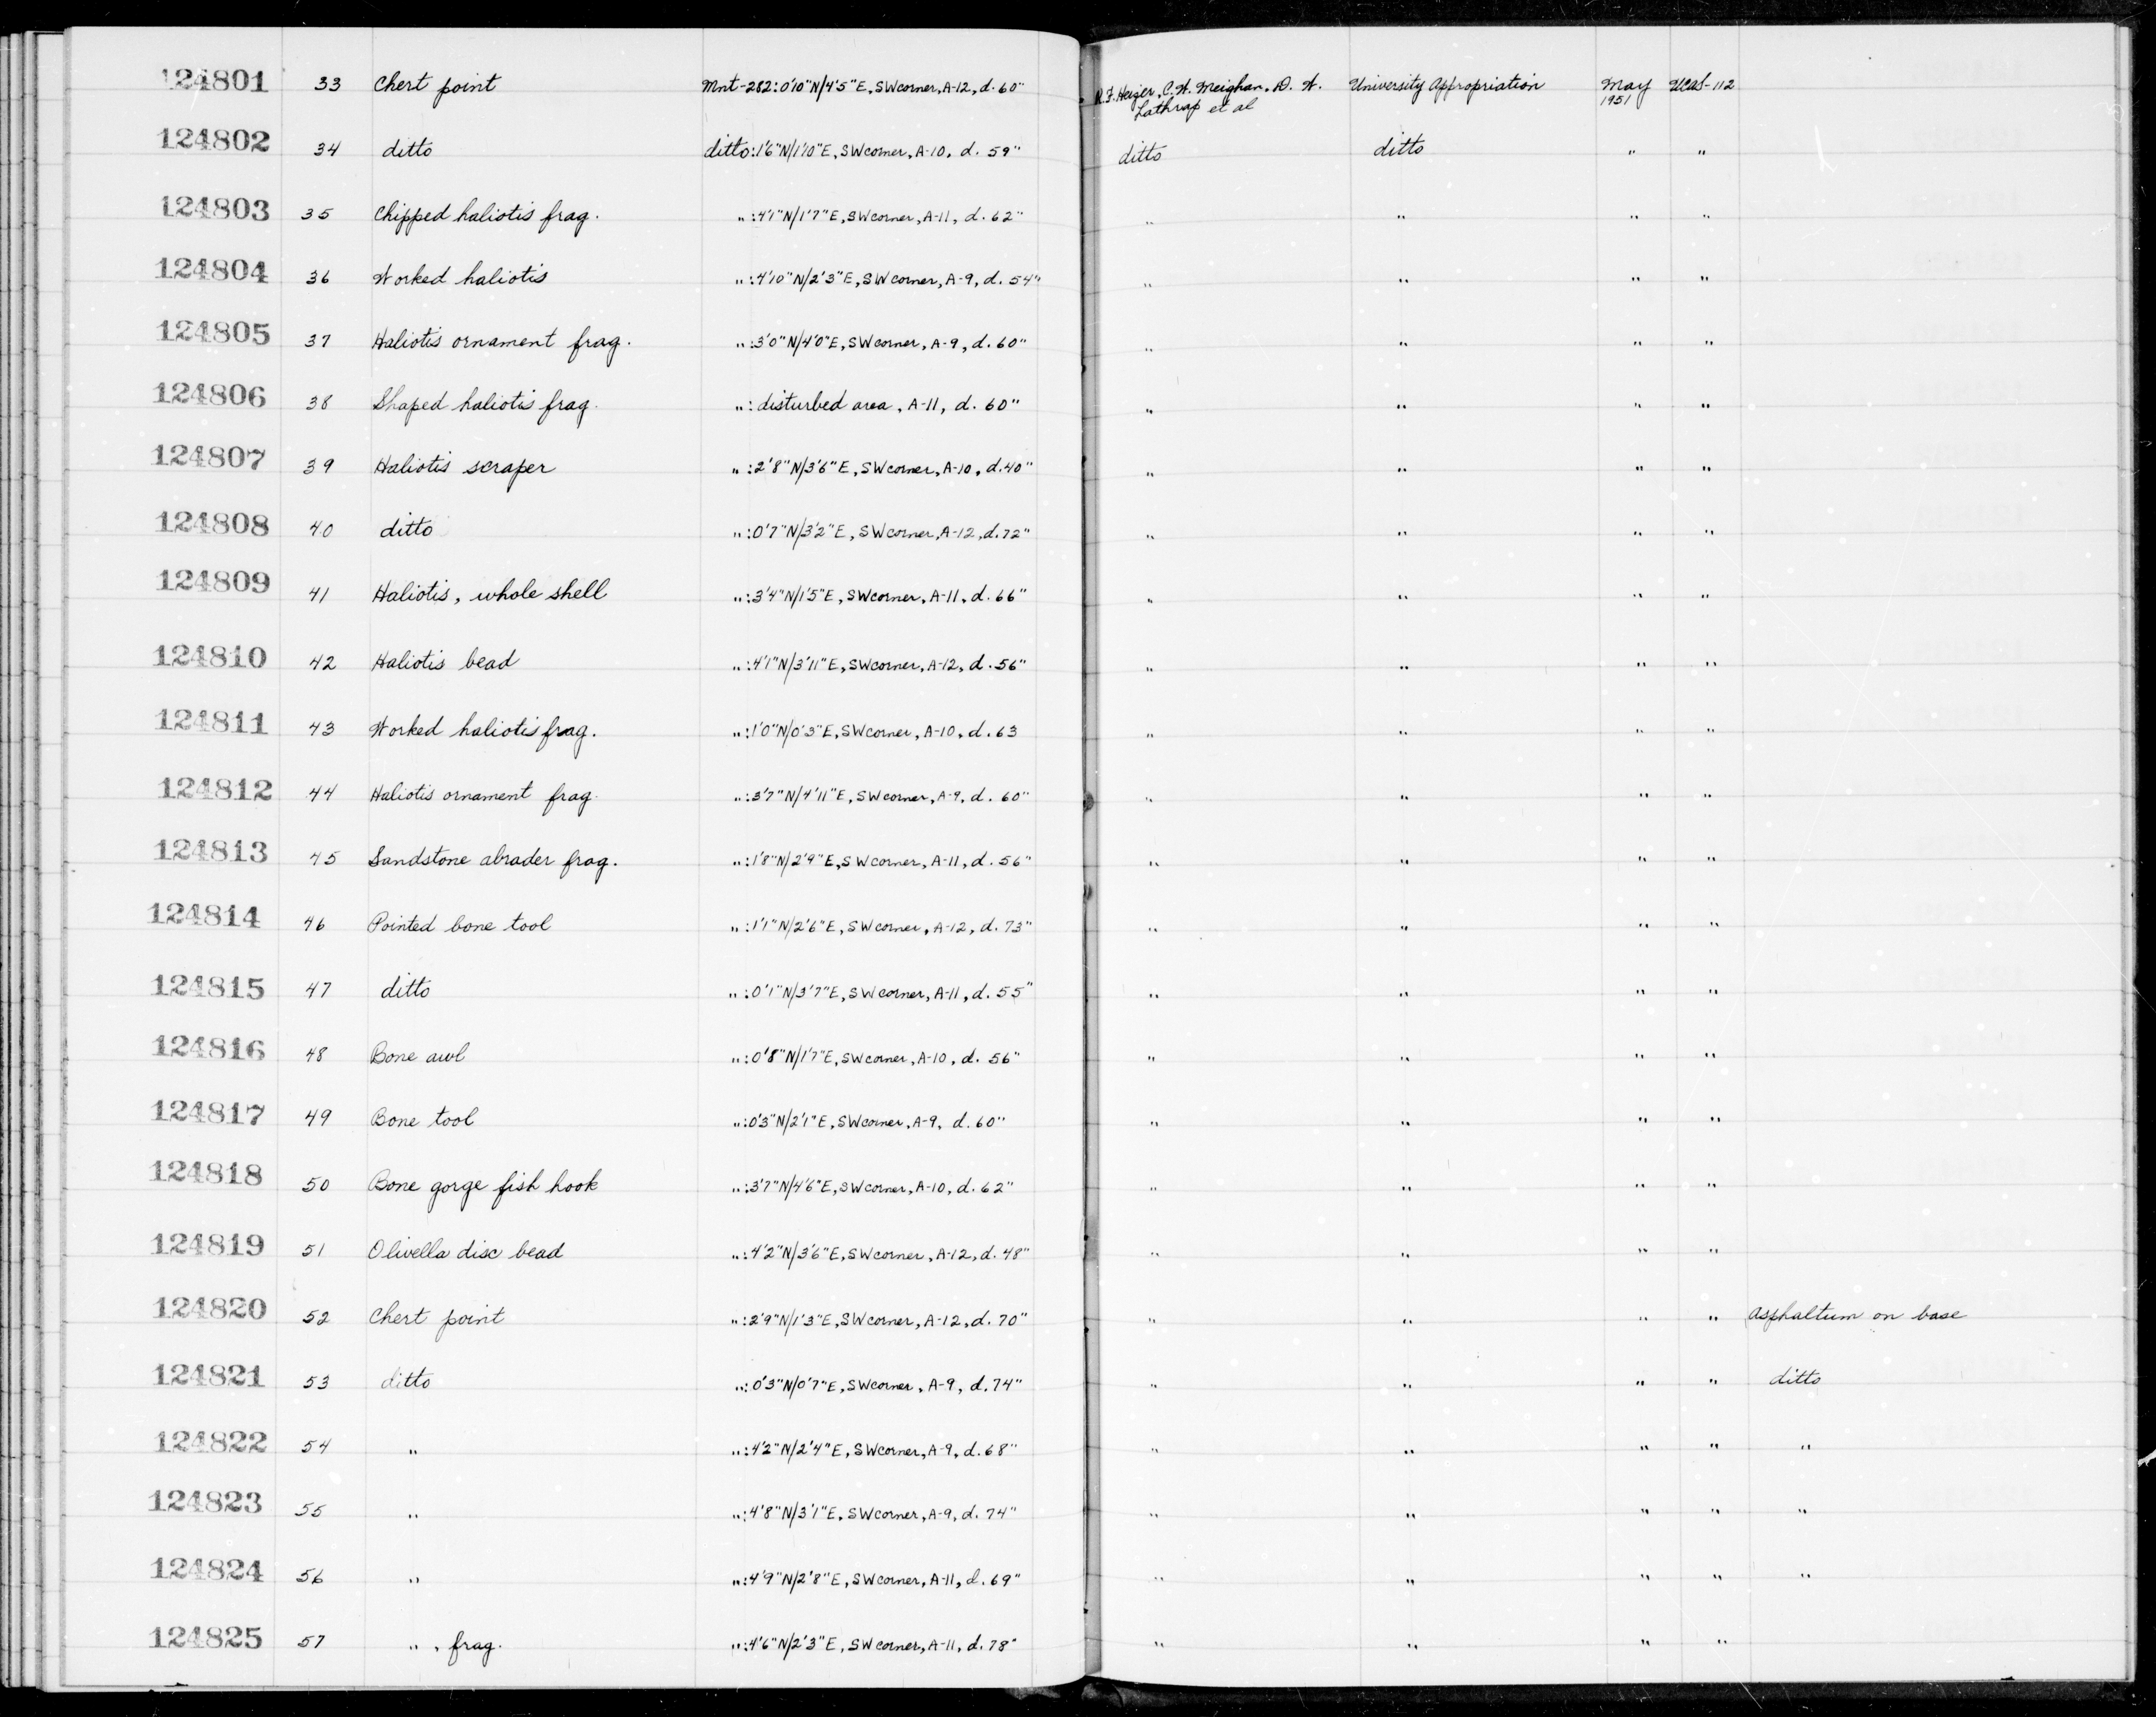 124801 33 Chert point Mnt-282:0'10"N/4'5"E, SW corner, A-12, d. 60" R.F. Heizer, C.W. Meighan, D. W. University Appropriation May Ucas-112
Lathrap et al 1951
124802 34 ditto ditto:1'6"N/1'10"E, SW corner, A-10, d. 59" ditto ditto " "
124803 35 Chipped haliotis frag. ":4'1"N/1'7"E, SW corner, A-11, d. 62" " " " "
124804 36 Worked haliotis ":4'10"N/2'3"E, SW corner, A-9, d. 54" " " " "
124805 37 Haliotis ornament frag. ":3'0"N/4'0"E, SW corner, A-9, d. 60" " " " "
124806 38 Shaped haliotis frag. ": disturbed area, A-11, d. 60" " " " "
124807 39 Haliotis scraper ":2'8"N/3'6"E, SW corner, A-10, d. 40" " " " "
124808 40 ditto ":0'7"N/3'2"E, SW corner, A-12, d. 72" " " " "
124809 41 Haliotis, whole shell ":3'4"N/1'5"E, SW corner, A-11, d. 66" " " " "
124810 42 Haliotis bead ":4'1"N/3'11"E, SW corner, A-12, d. 56" " " " "
124811 43 Worked haliotis frag. ":1'0"N/0'3"E, SW corner, A-10, d. 63 " " " "
124812 44 Haliotis ornament frag. ":3'7"N/4'11"E, SW corner, A-9, d. 60" " " " "
124813 45 Sandstone abrader frag. ":1'8"N/2'9"E, SW corner, A-11, d. 56" " " " "
124814 46 Pointed bone tool ":1'1"N/2'6"E, SW corner, A-12, d. 73" " " " "
124815 47 ditto ":0'1"N/3'7"E, SW corner, A-11, d. 55" " " " "
124816 48 Bone awl ":0'8"N/1'7"E, SW corner, A-10, d. 56" " " " "
124817 49 Bone tool ":0'3"N/2'1"E, SW corner, A-9, d. 60" " " " "
124818 50 Bone gorge fish hook ":3'7"N/4'6"E, SW corner, A-10, d. 62" " " " "
124819 51 Olivella disc bead ":4'2"N/3'6"E, SW corner, A-12, d. 48" " " " "
124820 52 Chert point ":2'9"N/1'3"E, SW corner, A-12, d. 70" " " " " asphaltum on base
124821 53 ditto ":0'3"N/0'7"E, SW corner, A-9, d. 74" " " " " ditto
124822 54 " ":4'2"N/2'4"E, SW corner, A-9, d. 68" " " " " "
124823 55 " ":4'8"N/3'1"E, SW corner, A-9, d. 74" " " " " "
124824 56 " ":4'9"N/2'8"E, SW corner, A-11, d. 69" " " " " "
124825 57 ", frag. ":4'6"N/2'3"E, SW corner, A-11, d. 78" " " " "